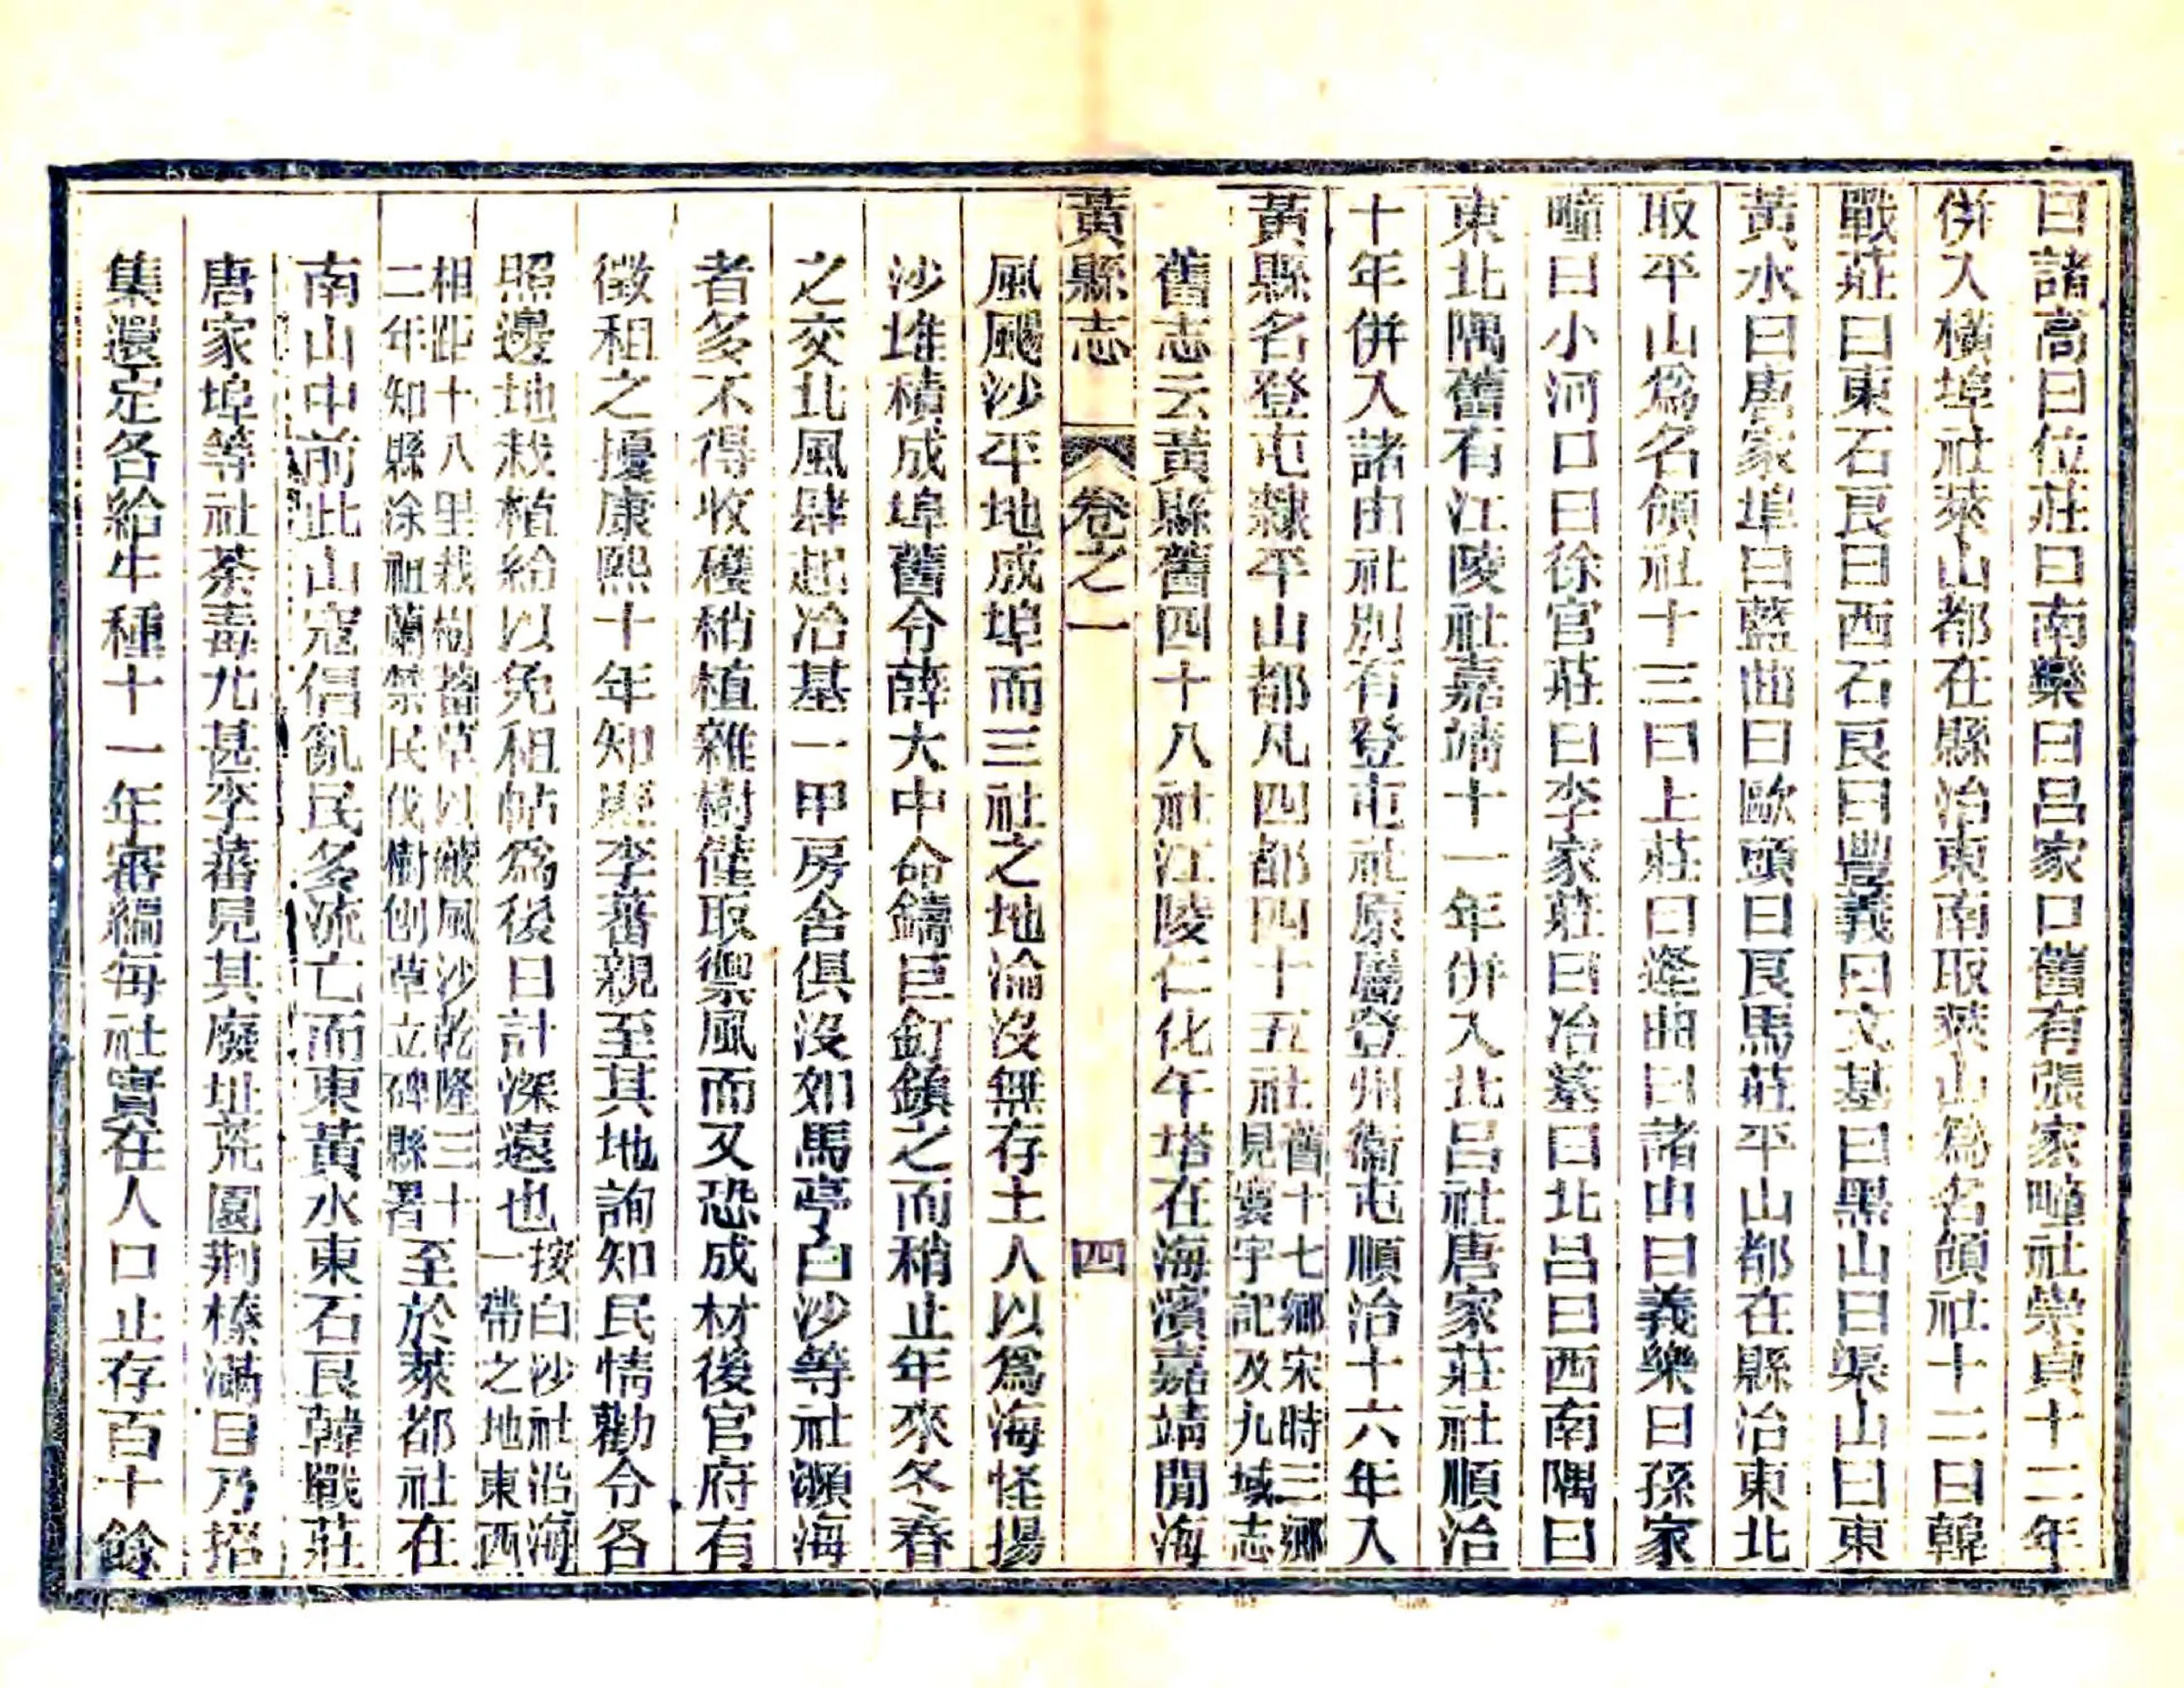 曰諸高曰位莊曰南欒曰呂家口舊有張家疃社崇貞十二年
併入橫埠社萊山都在縣治東南取萊山為名領社十二曰韓
戰莊曰東石良曰西石良曰豐義曰文基曰黑山曰渠山曰東
黃水曰唐家埠曰藍曲曰歐頭曰良馬莊平山都在縣治東北
取平山爲名領社十三曰上莊曰逄曲曰諸由曰義樂曰孫家
疃曰小河口曰徐官莊曰李家莊曰冶基曰北呂曰西南隅曰
東北隅舊有江陵社嘉靖十一年併入北呂社唐家莊社順治
十年併入諸由社別有登屯社原屬登州衞屯順治十六年入
黃縣名登屯隸平山都凡四都四十五社舊十七鄉宋時三鄉見寰宇記及九域志
舊志云黃縣舊四十八社江陵仁化午塔在海濱嘉靖間海
黃縣志 卷之一 四
風颺沙平地成埠而三社之地淪沒無存土人以爲海怪揚
沙堆積成埠舊令薛大中命鑄巨釘鎮之而稍止年來冬春
之交北風肆起冶基一甲房舍俱沒如馬亭白沙等社瀕海
者多不得收穫稍植雜樹僅取禦風而又恐成材後官府有
徵租之擾康熙十年知縣李蕃親至其地詢知民情勸令各
照邊地栽植給以免租帖爲後日計深遠也按白沙社沿海一帶之地東西
相距十八里栽樹蓄草以蔽風沙乾隆三十二年知縣涂祖蘭禁民伐樹刨草立碑縣署至於萊都社在
南山中前此山寇倡亂民多流亡而東黃水東石良韓戰莊
唐家埠等社荼毒尤甚李蕃見其廢址荒園荆榛滿目乃招
集還定各給牛種十一年審編每社實在人口止存百十餘